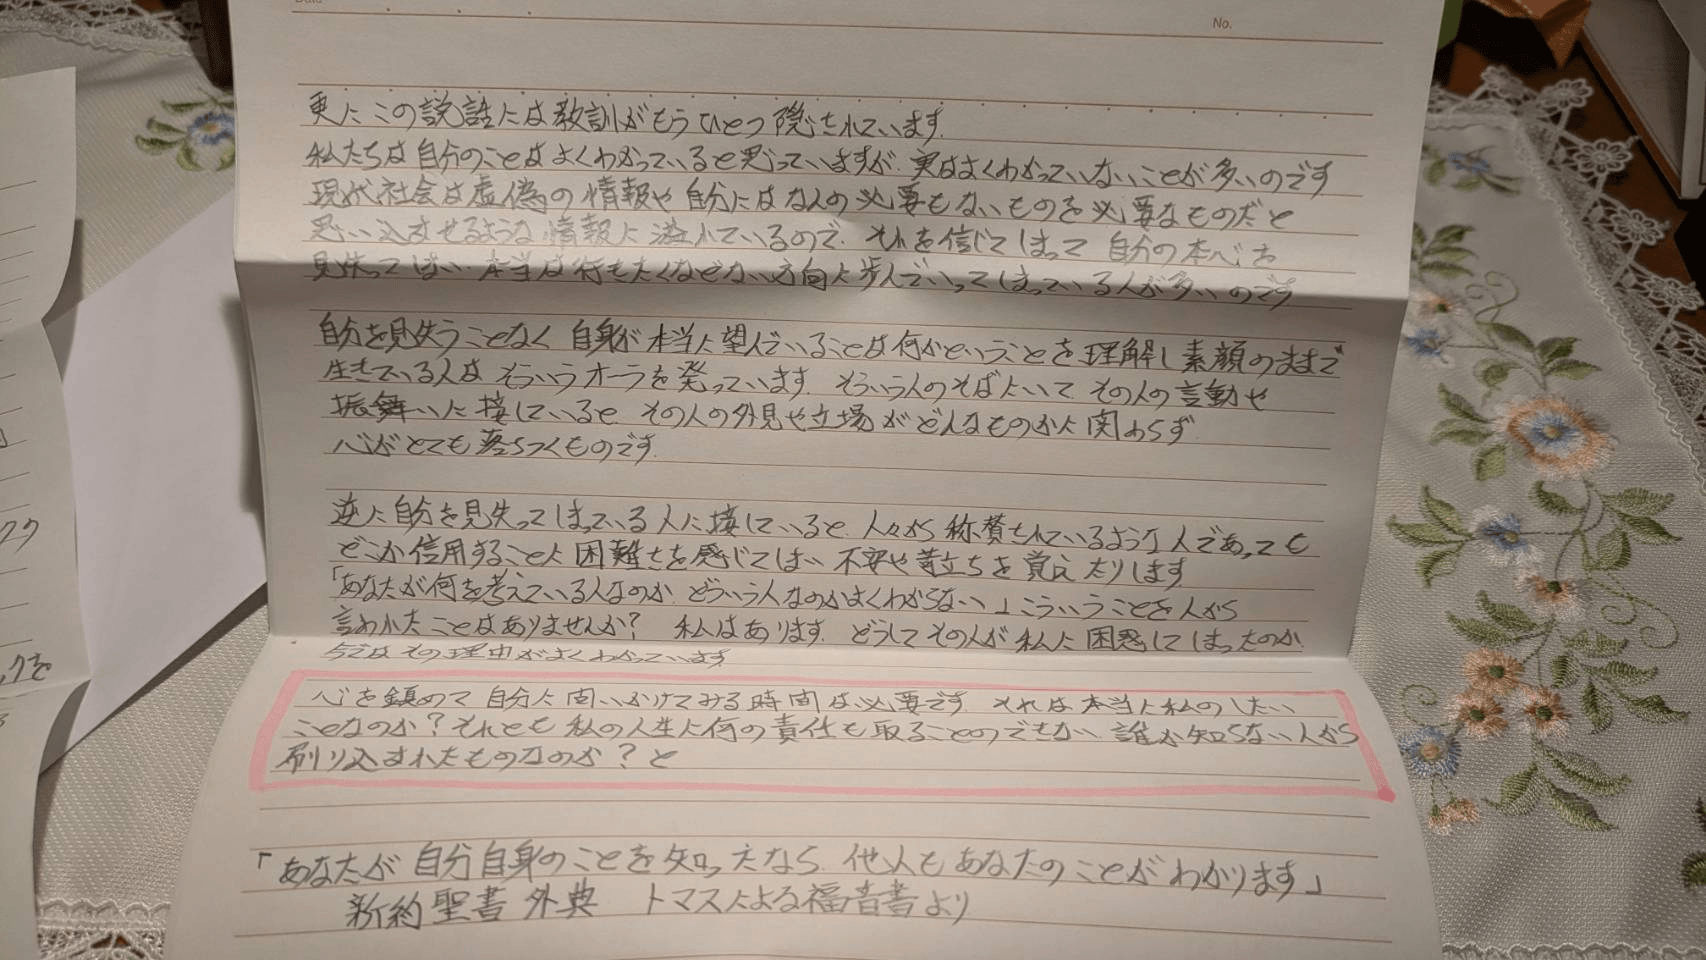 Date
No.
更にこの説話には教訓がもうひとつ隠されています.
私たちは自分のことはよくわかっていると思っていますが.実はよくわかっていないことが多いのです
現代社会は虚偽の情報や自分にはなんの必要もないものを必要なものだと
思い込ませるような情報に溢れているので.それを信じてしまって自分の本心を
見失ってしまい.本当は行きたくなどない方向に歩んでいってしまっている人が多いのです
自分を見失うことなく自身が本当に望んでいることは何かということを理解し素顔のままで
生きている人はそういうオーラを発っています.そういう人のそばにいてその人の言動や
振舞いに接しているとその人の外見や立場がどんなものかに関わらず
心がとても落ちつくものです.
逆に自分を見失ってしまっている人に接していると人々から称賛されているような人であっても
どこか信用することに困難さを感じてしまい不安や苛立ちを覚えたりします
「あなたが何を考えている人なのか.どういう人なのかよくわからない」こういうことを人から
言われたことはありませんか? 私はあります.どうしてその人が私に困惑してしまったのか
今ではその理由がよくわかっています
心を鎮めて自分に問いかけてみる時間は必要です.それは本当に私のしたい
ことなのか?それとも私の人生に何の責任も取ることのできない誰か知らない人から
刷り込まれたものなのか?と
「あなたが自分自身のことを知ったなら他人もあなたのことがわかります」
新約聖書外典 トマスによる福音書より
クク
ックを